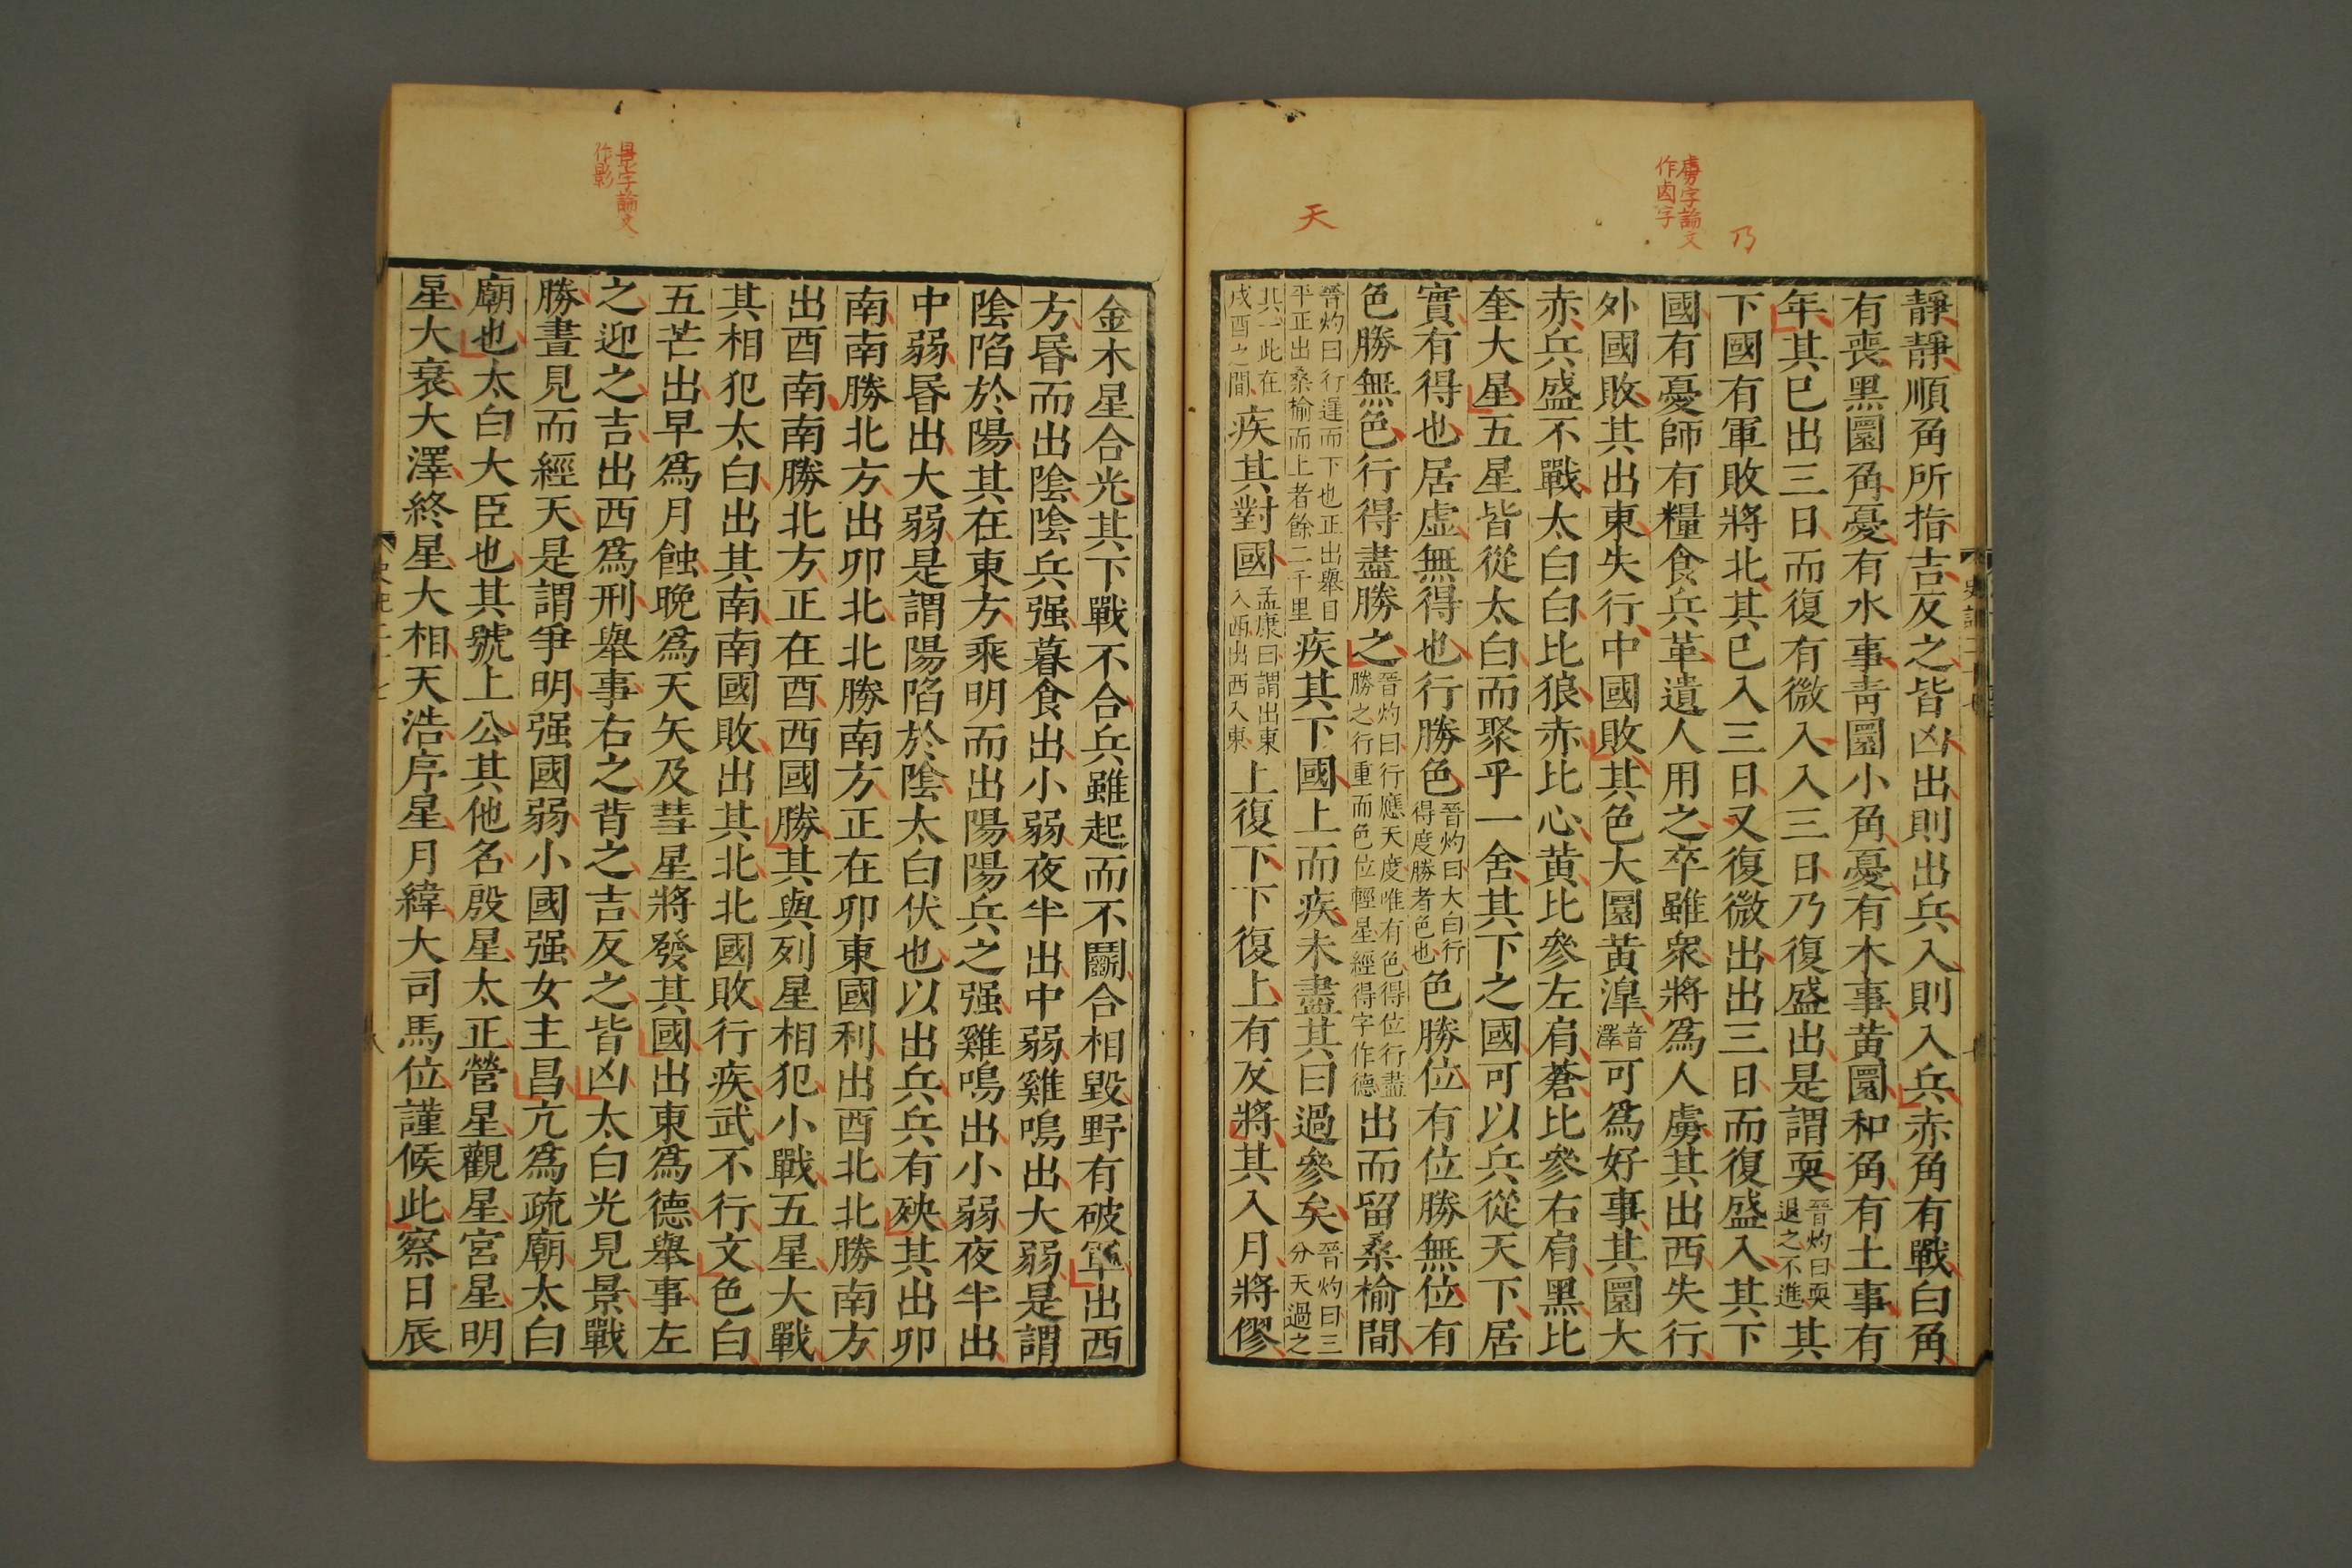 乃
虜字論文
作卤字
天
靜靜順角所指吉反之皆凶出則出兵入則入兵赤角有戰白角
有喪黑圜角憂有水事靑圜小角憂有木事黃圜和角有土事有
年其已出三日而復有微入入三日乃復盛出是謂耎晉灼曰耎退之不進其
下國有軍敗將北其已入三日又復微出出三日而復盛入其下
國有憂師有糧食兵革遺人用之卒雖衆將爲人虜其出西失行
外國敗其出東失行中國敗其色大圜黃滜音澤可爲好事其圜大
赤兵盛不戰太白白比狼赤比心黃比參左肩蒼比參右肩黑比
奎大星五星皆從太白而聚乎一舍其下之國可以兵從天下居
實有得也居虛無得也行勝色晉灼曰大白行得度勝者色也色勝位有位勝無位有
色勝無色行得盡勝之晉灼曰行應天度唯有色得位行盡勝之行重而色位輕星經得字作德出而留桑榆間
晉灼曰行遲而下也正出舉目平正出桑榆而上者餘二千里疾其下國上而疾未盡其日過參矣晉灼曰三分天過之
其一此在戌酉之間疾其對國孟康曰謂出東入西出西入東上復下下復上有反將其入月將僇
史記二十七
景字論文
作影
金木星合光其下戰不合兵雖起而不鬭合相毀野有破軍出西
方昬而出陰陰兵强暮食出小弱夜半出中弱雞鳴出大弱是謂
陰陷於陽其在東方乘明而出陽陽兵之强雞鳴出小弱夜半出
中弱昬出大弱是謂陽陷於陰太白伏也以出兵兵有殃其出卯
南南勝北方出卯北北勝南方正在卯東國利出酉北北勝南方
出酉南南勝北方正在酉西國勝其與列星相犯小戰五星大戰
其相犯太白出其南南國敗出其北北國敗行疾武不行文色白
五芒出早爲月蝕晚爲天矢及彗星將發其國出東爲德舉事左
之迎之吉出西爲刑舉事右之背之吉反之皆凶太白光見景戰
勝晝見而經天是謂爭明强國弱小國强女主昌亢爲疏廟太白
廟也太白大臣也其號上公其他名殷星太正營星觀星宮星明
星大衰大澤終星大相天浩序星月緯大司馬位謹候此察日辰
史記二十七
八